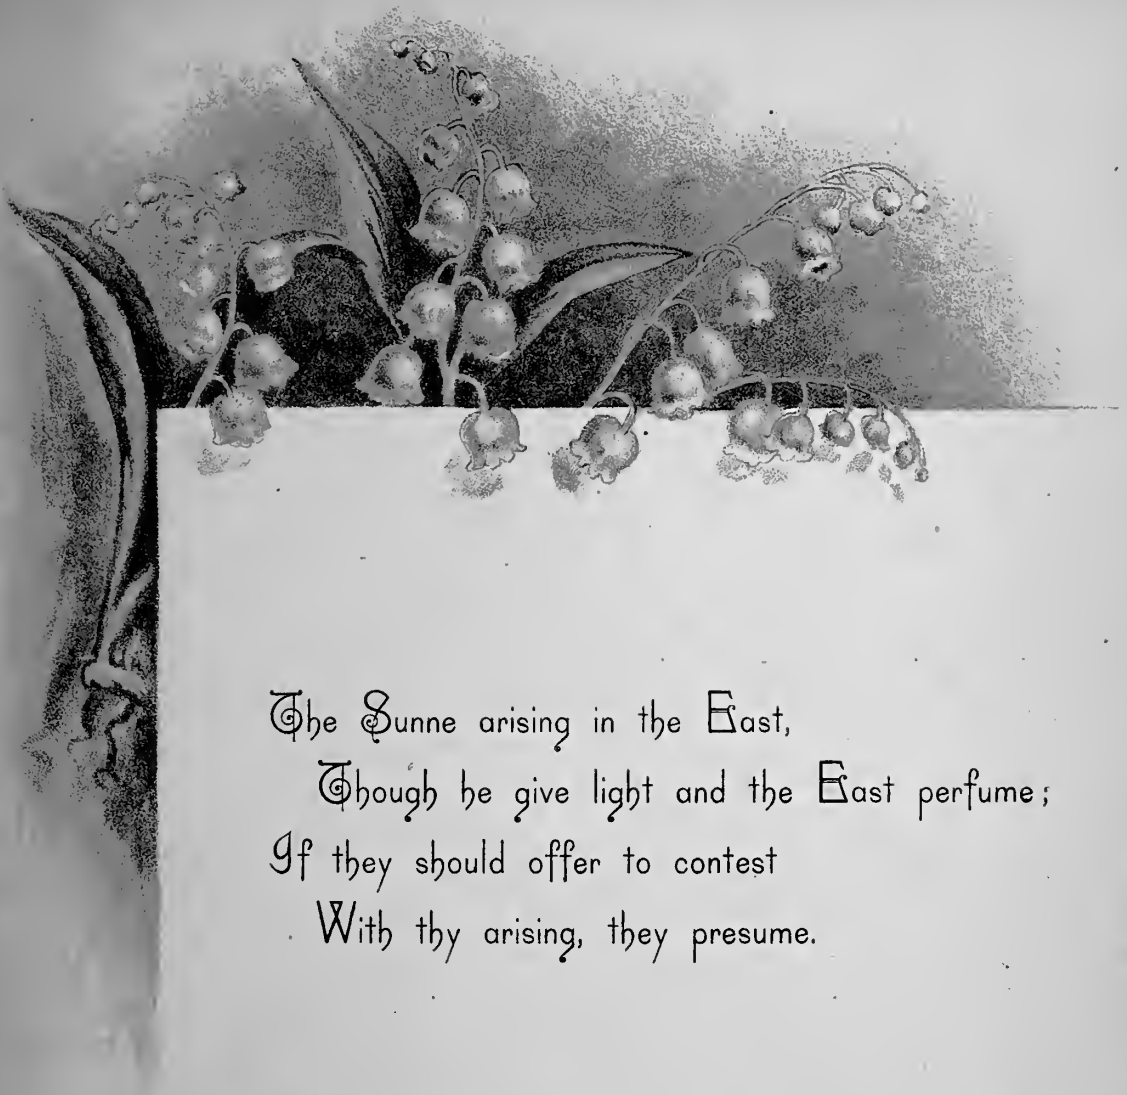 The Sunne arising in the East,
Though he give light and the East perfume;
If they should offer to contest
With thy arising, they presume.